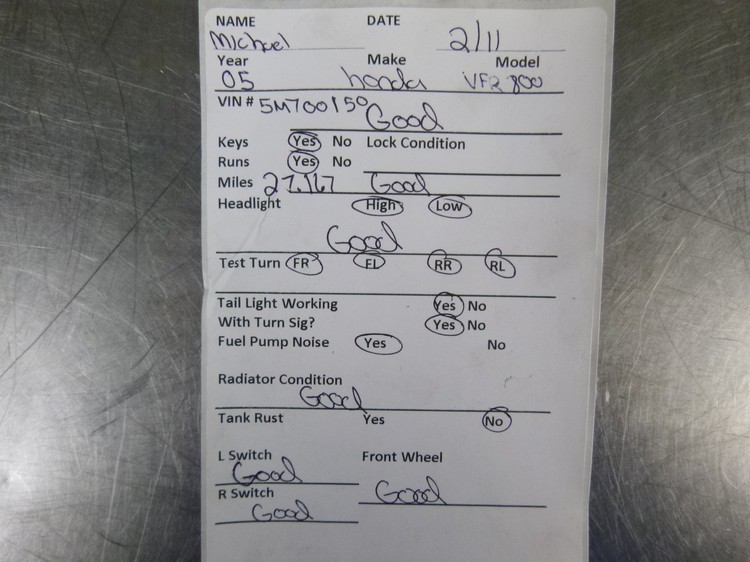 NAME DATE
Michael 2/11
Year Make Model
05 honda VFR 800
VIN # 5M700150
Good
Keys Yes No Lock Condition
Runs Yes No
Miles 27,167 Good
Headlight High Low
Good
Test Turn FR FL RR RL
Tail Light Working Yes No
With Turn Sig? Yes No
Fuel Pump Noise Yes No
Radiator Condition
Good
Tank Rust Yes No
L Switch Front Wheel
Good
R Switch Good
Good